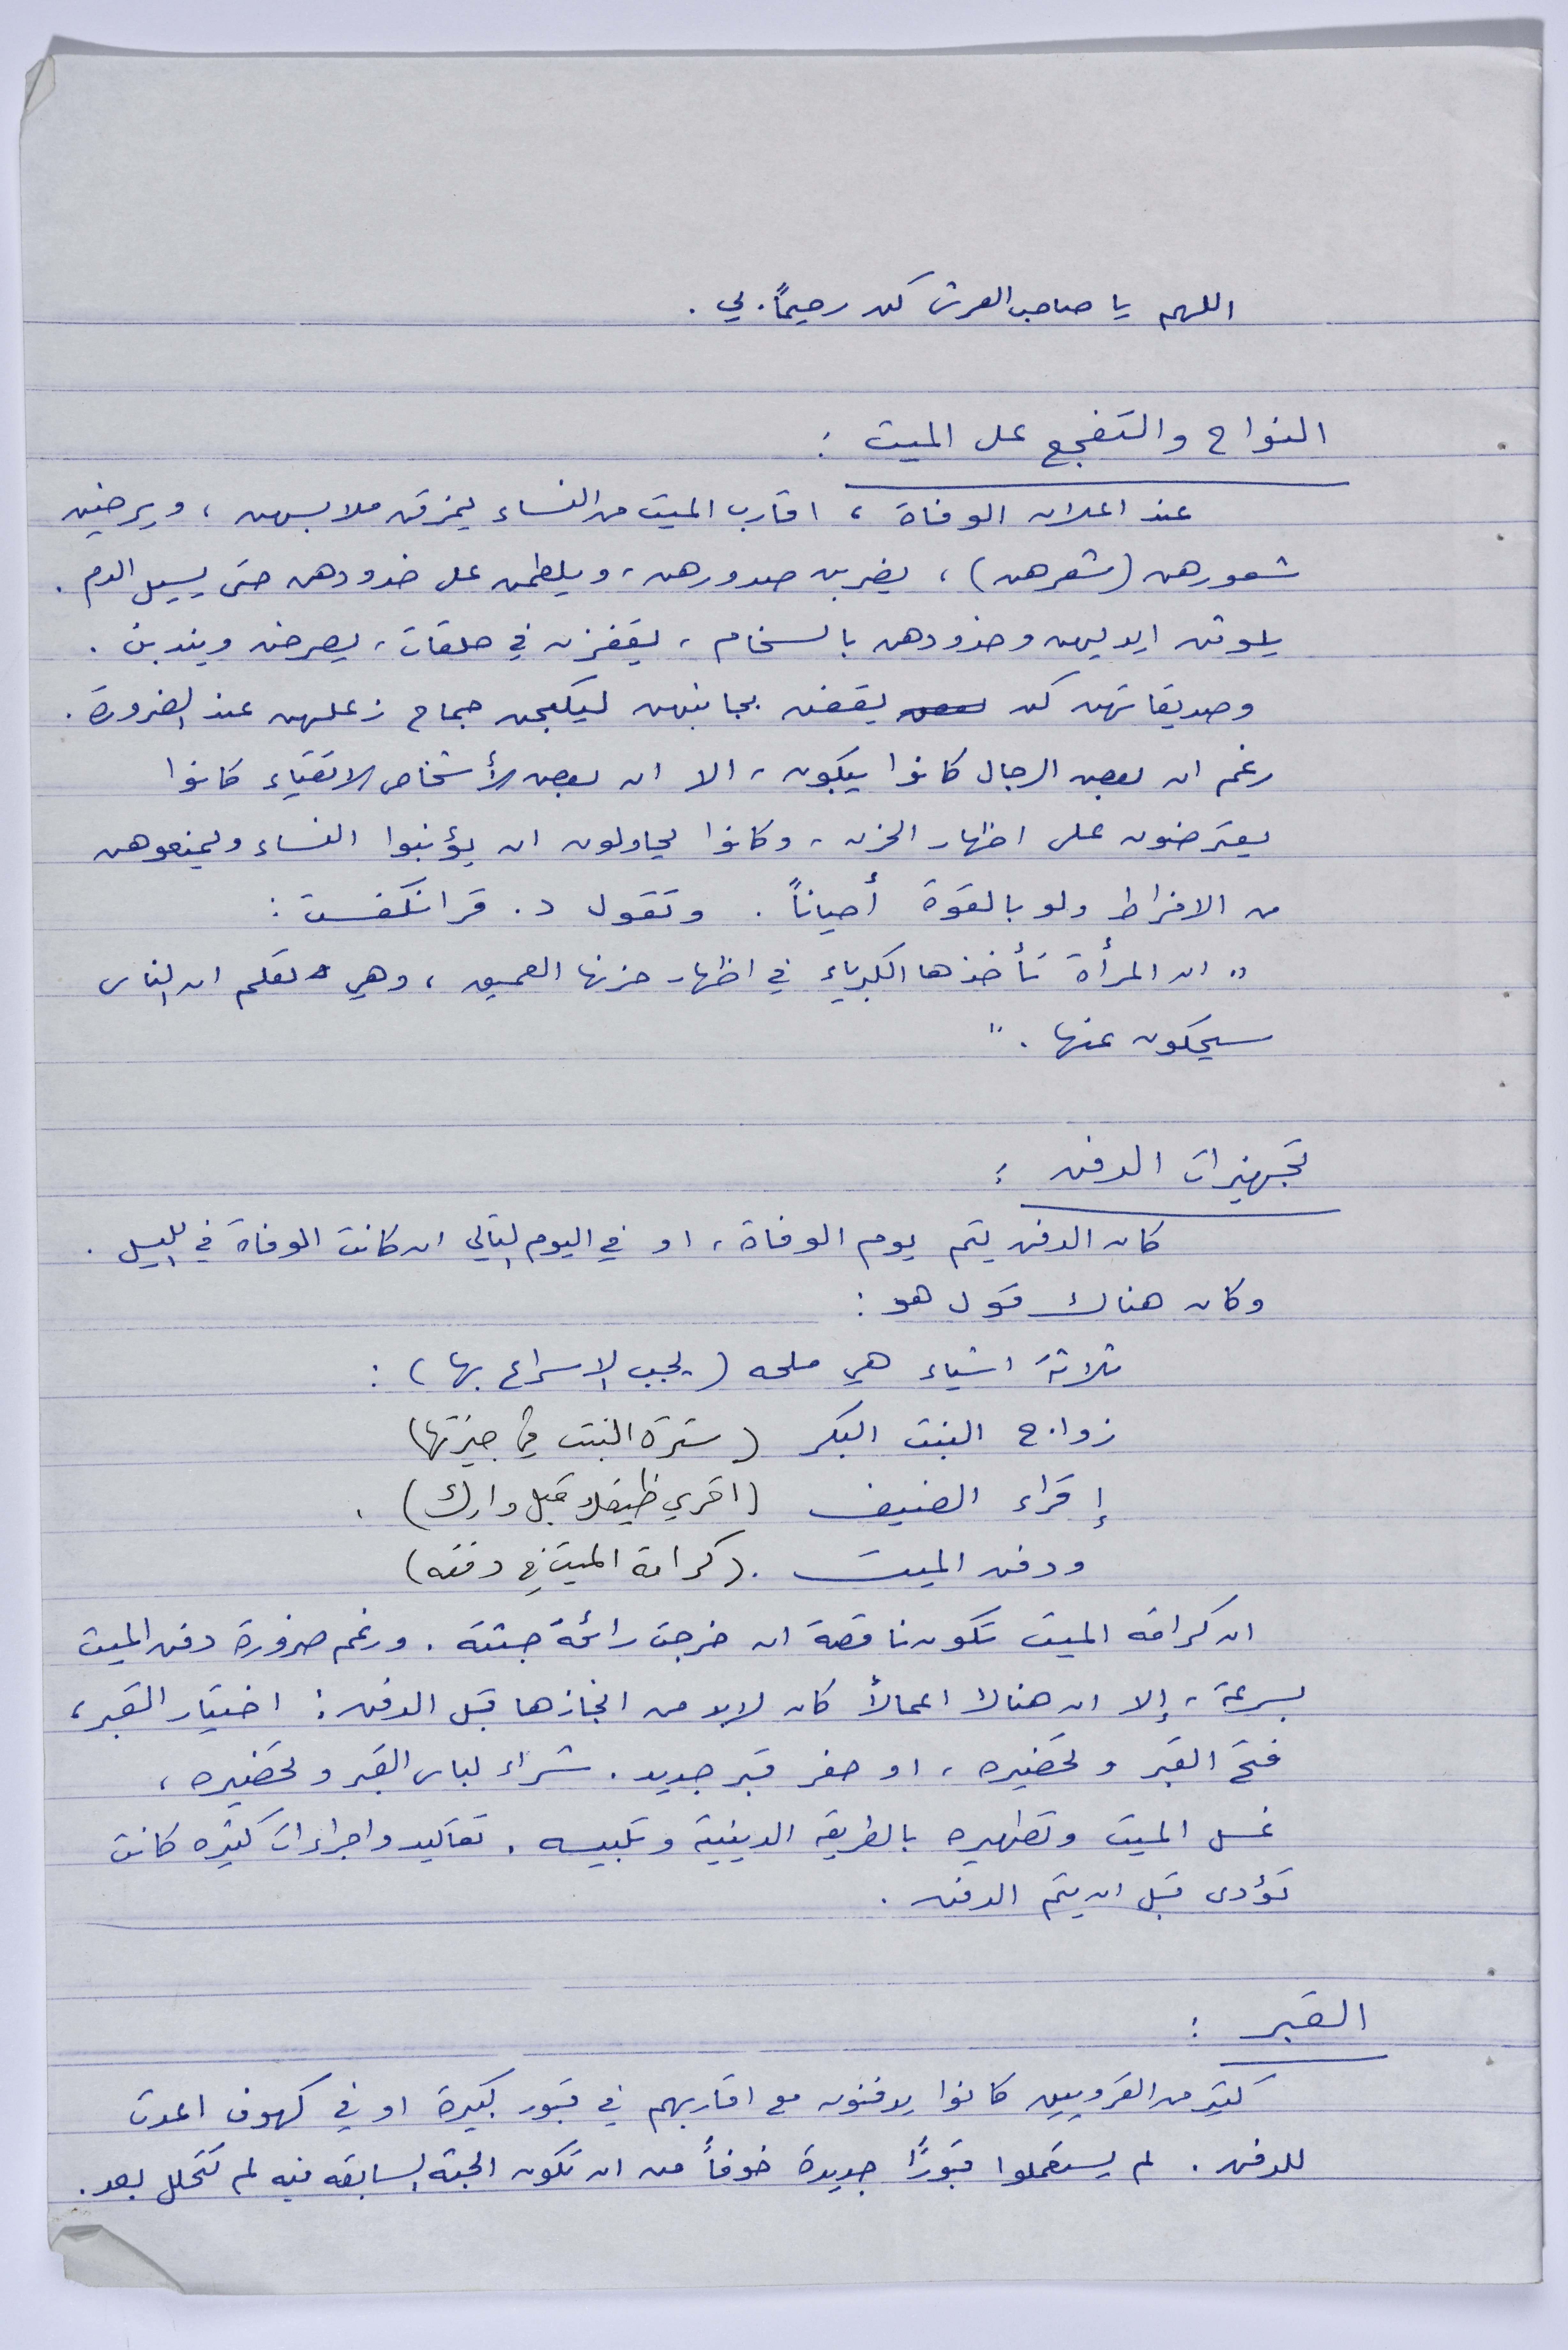 اللهم يا صاحب العرش كن رحيماً. لي .
النواح والتفجع على الميت :
عند اعلان الوفاة ، اقارب الميت من النساء يمزقن ملابسهن ، ويرخين
شعورهن (شعرهن) ، يضربن صدورهن ، ويلطمن على خدودهن حتى يسيل الدم .
يلوثن ايديهن وخدودهن بالسخام ، يقفزن في حلقات ، يصرخن ويندبن .
وصديقاتهن كن يقفن بجانبهن ليكبحن جماح زعلهن عند الضرورة .
رغم ان بعض الرجال كانوا يبكون ، الا ان بعض الأشخاص الاتقياء كانوا
يعترضون على اظهار الحزن ، وكانوا يحاولون ان يؤنبوا النساء ويمنعوهن
من الافراط ولو بالقوة أحياناً . وتقول د. قرانكفست :
" ان المرأة تأخذها الكبرياء في اظهار حزنها العميق ، وهي تعلم ان الناس
سيحكون عنها . "
تجهيزات الدفن :
كان الدفن يتم يوم الوفاة ، او في اليوم التالي ان كانت الوفاة في الليل .
وكان هناك قول هو :
ثلاثة اشياء هي ملحه (يجب الاسراع بها) :
زواج البنت البكر (سترة البنت في جيزتها)
إقراء الضيف (اقري ظيفك قبل دارك) .
ودفن الميت . (كرامة الميت في دفنه)
ان كرامة الميت تكون ناقصة ان خرجت رائحة جثته . ورغم ضرورة دفن الميت
بسرعة ، إلا ان هناك اعمالاً كان لابد من انجازها قبل الدفن : اختيار القبر ،
فتح القبر وتحضيره ، او حفر قبر جديد . شراء لباس القبر وتحضيره ،
غسل الميت وتطهيره بالطريقه الدينية وتلبيسه . تقاليد واجراءات كثيره كانت
تؤدى قبل ان يتم الدفن .
القبر :
كثير من القرويين كانوا يدفنون مع اقاربهم في قبور كبيرة او في كهوف اعدت
للدفن . لم يستعملوا قبورًا جديدة خوفاً من ان تكون الجثة السابقه فيه لم تتحلل بعد .